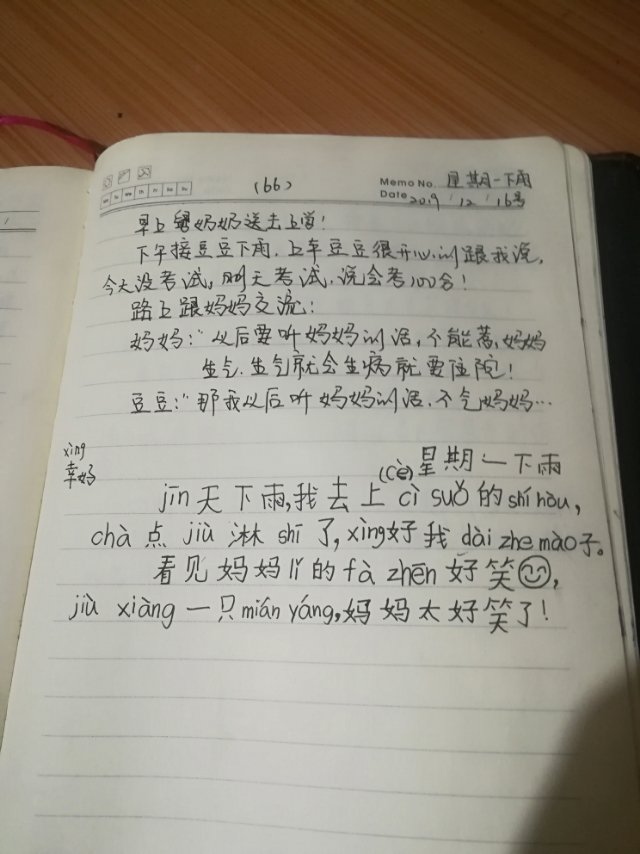 (66)
Memo No. 星期一下雨
Date 2019 / 12 / 16号
早上 奶奶送去上学!
下午接豆豆下雨,上车豆豆很开心的跟我说,
今天没考试,明天考试,说会考100分!
路上跟妈妈交流:
妈妈:“以后要听妈妈的话,不能惹妈妈
生气.生气就会生病就要住院!
豆豆:“那我以后听妈妈的话.不气妈妈…
xìng
幸好
(cè) 星期一下雨
jīn天下雨,我去上cì suǒ的shí hòu,
chà点 jiù 淋 shī 了,xìng好我dài zhe mào子。
看见妈妈lǐ的fà zhēn好笑,
jiù xiàng 一只mián yáng,妈妈太好笑了!